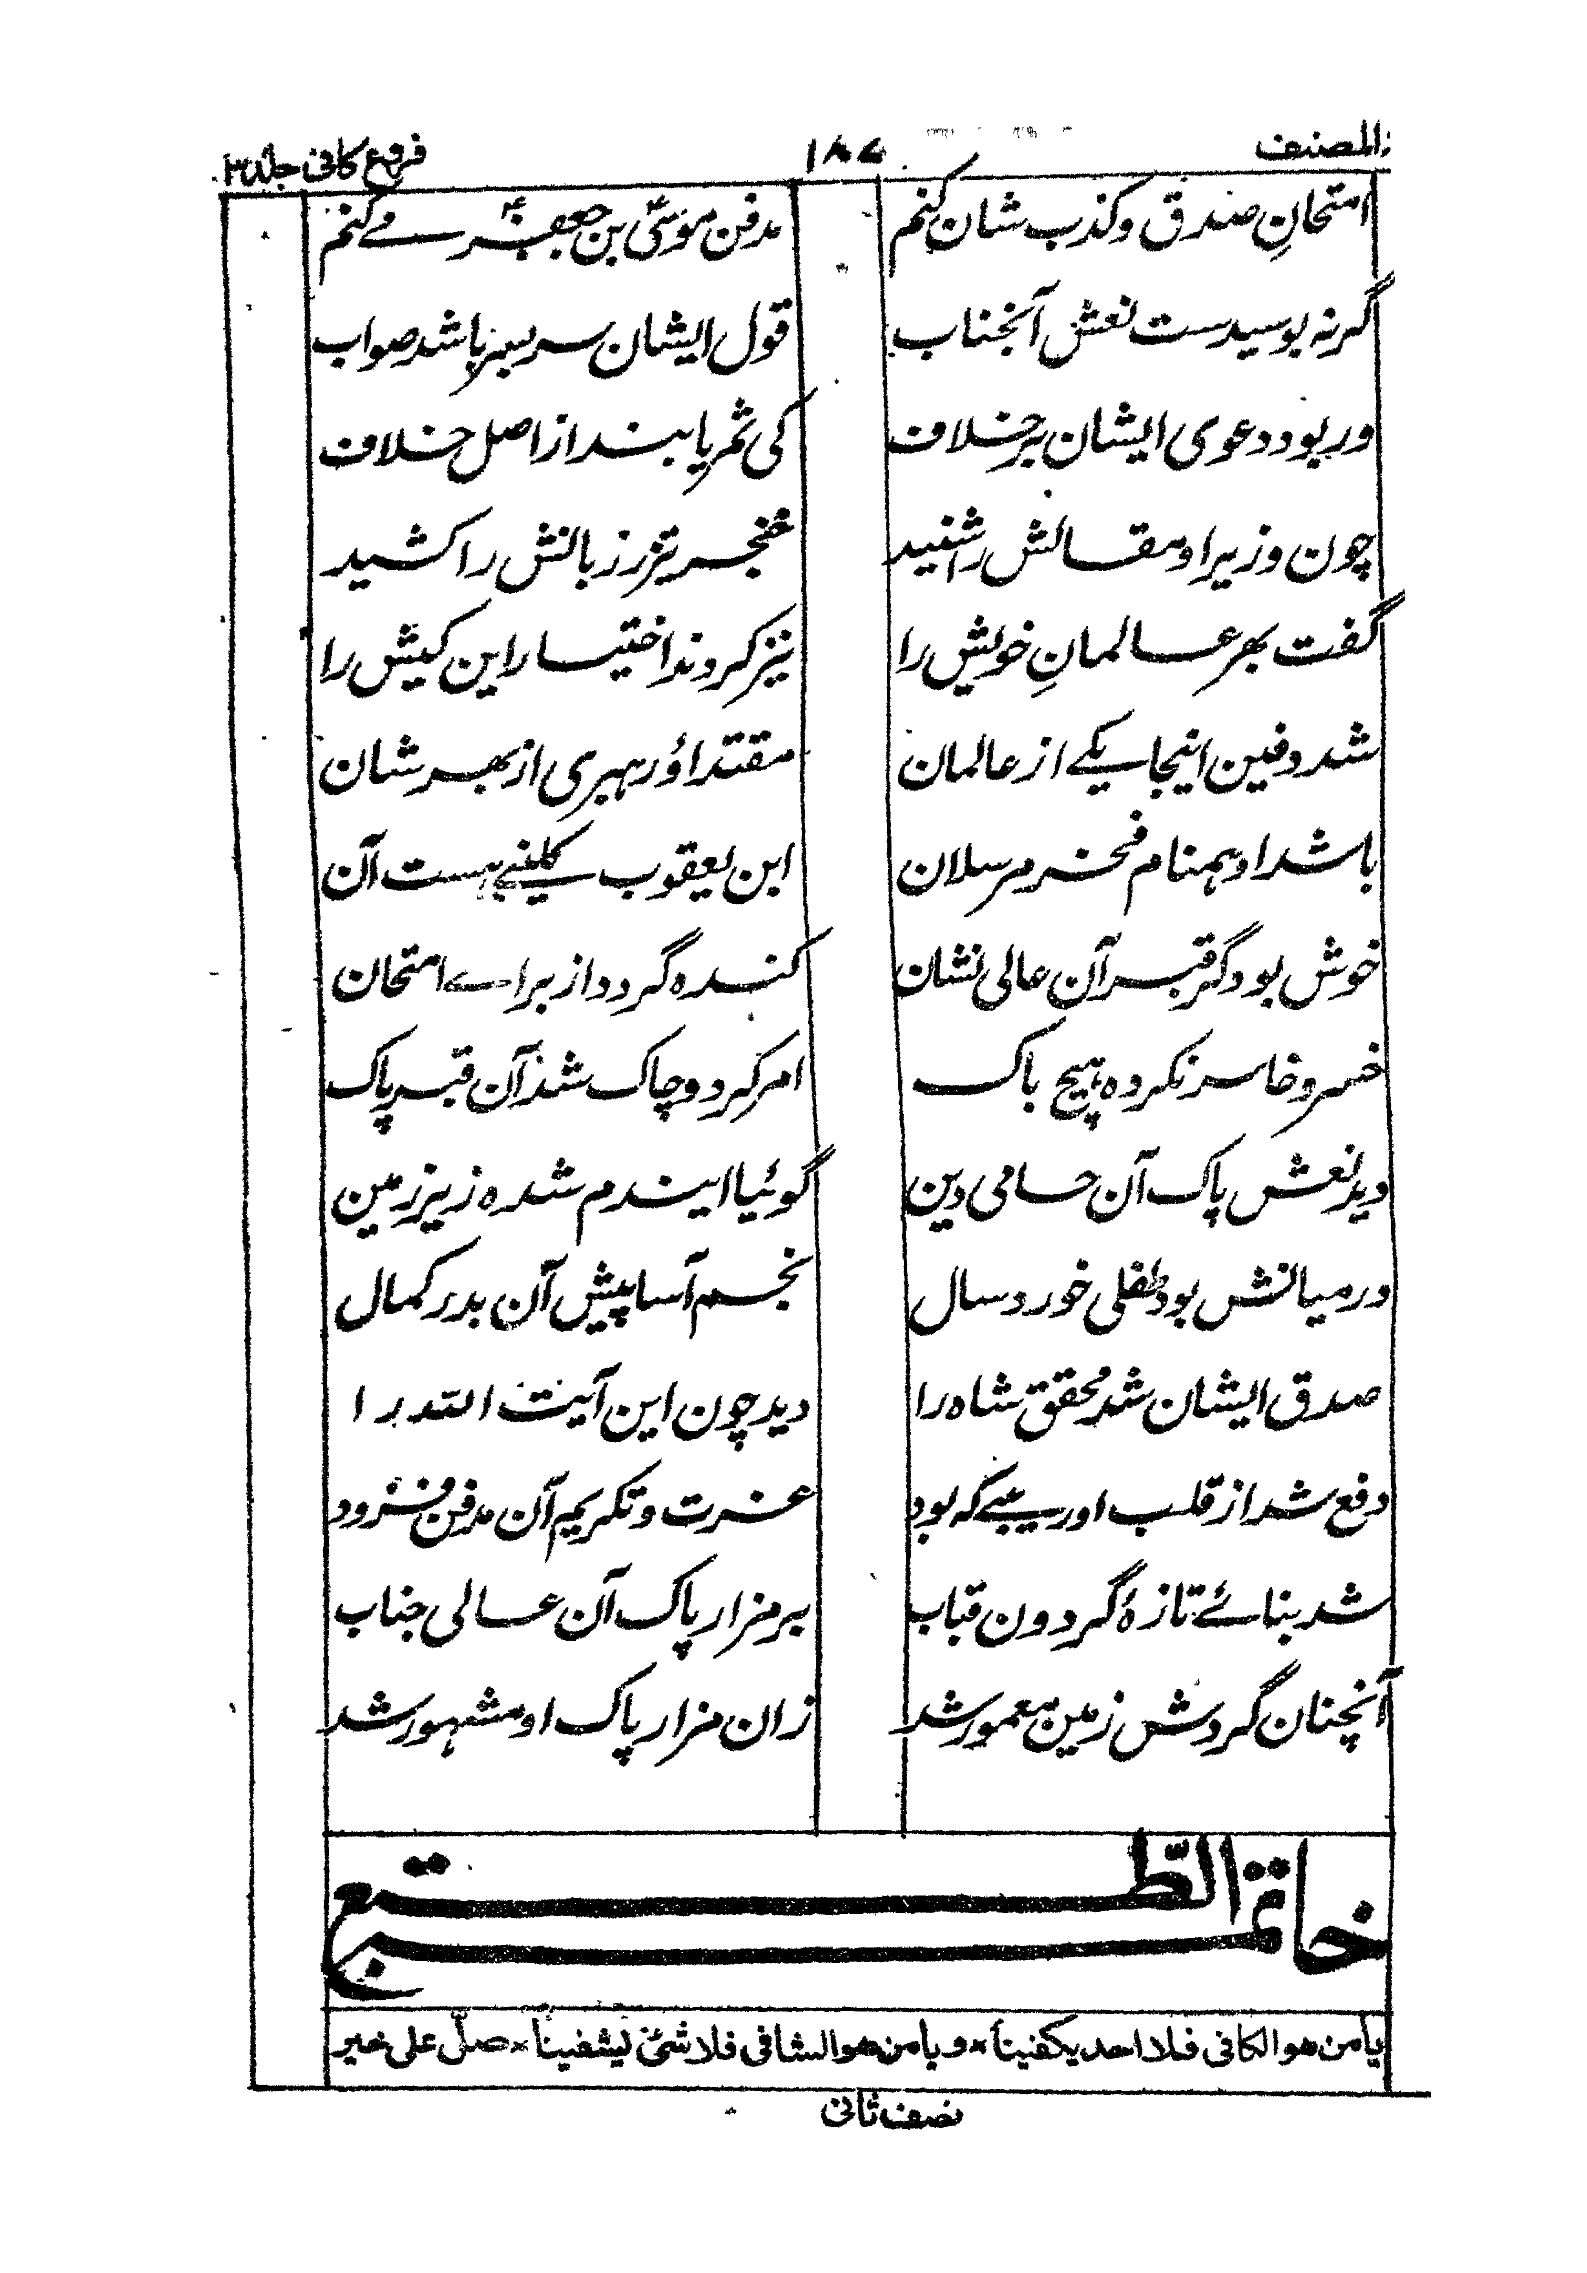 المصنف ۱۸۷ فروع کافی جلد ۳
امتحانِ صدق و کذب شان کنم مدفن موسیٰؑ بن جعفرؑ مے کنم
گر نہ بوسیدست نعش آنجناب قول ایشان سر بسر باشد صواب
ور بود دعوی ایشان بر خلاف کی ثمر یابند از اصل خلاف
چون وزیر او مقالش را شنید خنجر تیز زبانش را کشید
گفت بهر عالمانِ خویش را نیز کردند اختیار این کیش را
شد دفین اینجا یکے از عالمان مقتدا و رہبری از بهر شان
باشد او ہمنام فخر مرسلان ابن یعقوب کلینے ہست آن
خوش بود گر قبر آن عالی نشان کنده گردد از براے امتحان
خسرو خاسر نکرده ہیچ باک امر کرد و چاک شد آن قبر پاک
دید نعش پاک آن حامی دین گوئیا ایندم شده زیر زمین
در میانش بود طفلی خورد سال نجم آسا پیش آن بدر کمال
صدق ایشان شد محقق شاه را دید چون این آیت اللہ را
دفع شد از قلب او ریبے که بود عزت و تکریم آن مدفن فزود
شد بنائے تازهٔ گردون قباب بر مزار پاک آن عالی جناب
آنچنان گردش زمین معمور شد زان مزار پاک او مشہور شد
خاتمۃ الطبع
یا من هو الکافی فلا احد یکفینا * و یا من هو الشافی فلا شئ یشفینا * صلّ علی خیر
نصف ثانی